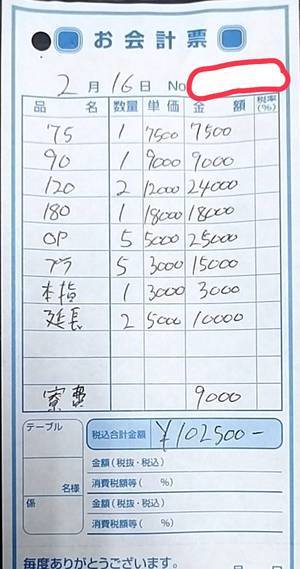 お会計票
2月16日 No.
品名 数量 単価 金額 税率(%)
75 1 7500 7500
90 1 9000 9000
120 2 12000 24000
180 1 18000 18000
OP 5 5000 25000
プラ 5 3000 15000
本指 1 3000 3000
延長 2 5000 10000
寮費 9000
テーブル 税込合計金額 ¥102500-
金額(税抜・税込)
名様 消費税額等( %)
係 金額(税抜・税込)
消費税額等( %)
毎度ありがとうございます。 月 日